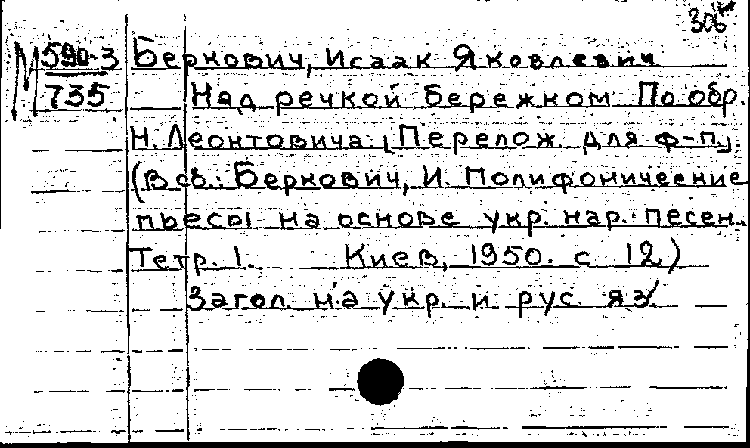 306
М 590-3 Беркович, Исаак Яковлевич
735 Над речкой бережком. По обр.
Н. Леонтовича. [Перелож. для ф-п].
(В сб.: Беркович, И. Полифонические
пьесы на основе укр. нар. песен.
Тетр. 1. Киев, 1950. с 12)
Загол. на укр. и рус. яз.